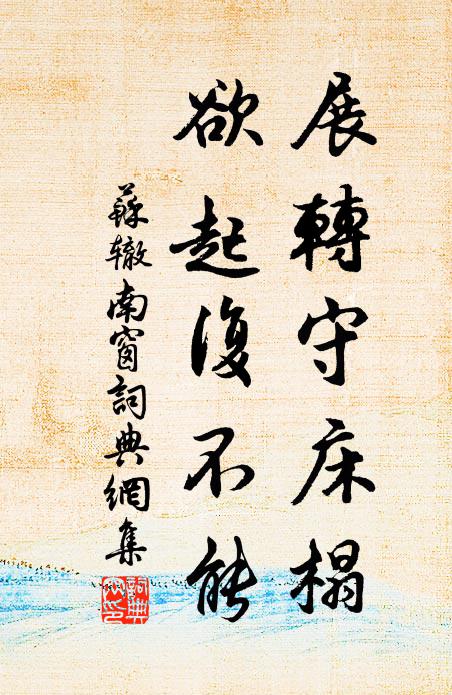 展轉守床榻
欲起復不能
蘇辙南窗詞典網集